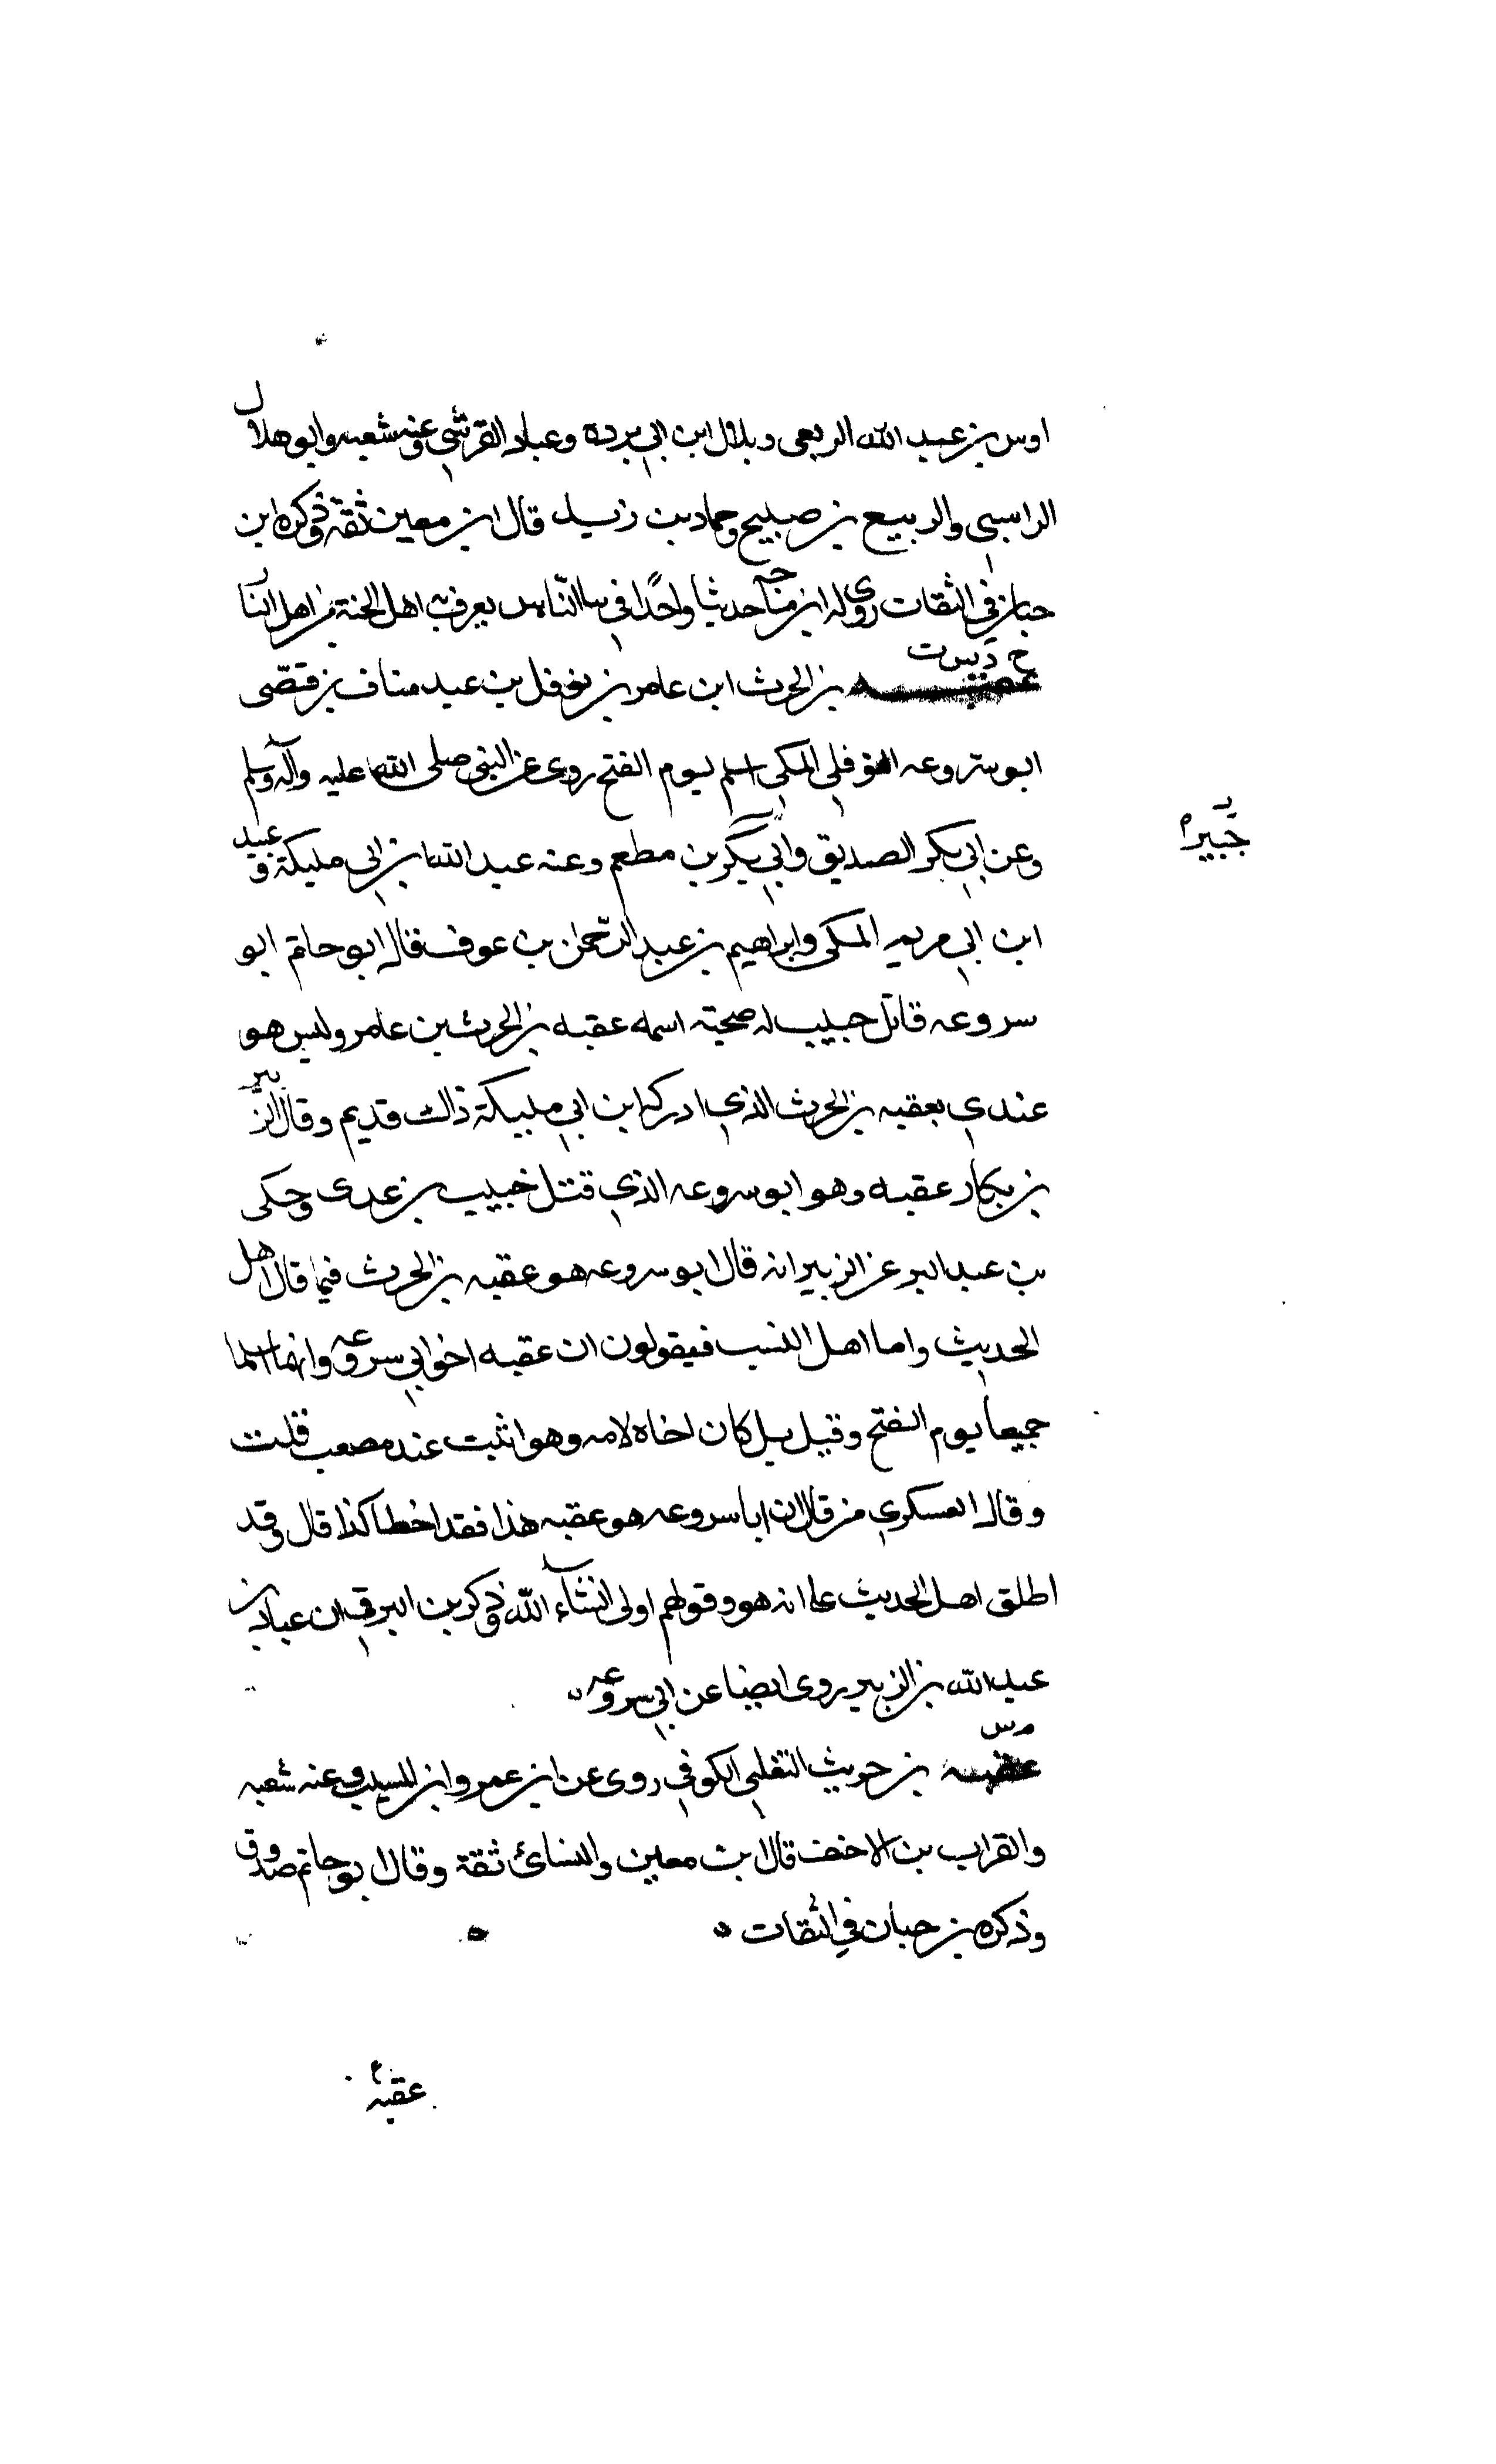 اوس بن عبد الله الربعى وبلال ابن ابي بردة وعباد القرشي وعنه شعبه وابو هلال
الراسبي والربيع بن صبيح وحماد بن زيد قال ابن معين ثقة وذكره ابن
حبان في الثقات روى له ابن ماجه حديثا واحدًا في ثنا النّاس يعرف به اهل الجنة من اهل النار
خ د س ت
عقبه بن الحرث ابن عامر بن نوفل بن عبد مناف بن قصّى
ابو سروعه النوفلي المكي اسلم يوم الفتح روى عن النبى صلى الله عليه وآله وسلم
وعن ابي بكر الصديق وابي بكر بن مطعم وعنه عبد الله بن ابي مليكة وعبيد
جبير
ابن ابي مريم المكى وابراهيم بن عبد الرّحمن بن عوف قال ابو حاتم ابو
سروعه قاتل حبيب له صحبة اسمه عقبه بن الحرث بن عامر وليس هو
عندي بعقبه بن الحرث الذي ادركه ابن ابي مليكة ذالك قديم وقال الزبير
بن بكار عقبه وهو ابو سروعه الذي قتل خبيب بن عدى وحكى
بن عبد البر عن الزبير انه قال ابو سروعه هو عقبه بن الحرث فيما قال اهل
الحديث واما اهل النسب فيقولون ان عقبه اخو ابي سروعه وانهما اسلما
جميعا يوم الفتح وقيل بل كان اخاه لامه وهو اثبت عند مصعب قلت
وقال العسكري من قال ان ابا سروعه هو عقبه هذا فقد اخطا كذا قال وقد
اطلق اهل الحديث على انه هو وقولهم اولى انشآء الله وذكر بن البرقي ان عباد بن
عبد الله بن الزبير روى ايضا عن ابي سروعه
م س
عقبه بن حريث التغلبي الكوفي روى عن ابن عمر وابن المسيب وعنه شعبه
والقرات بن الاحنف قال ابن معين والنسائ ثقة وقال ابو حاتم صدوق
وذكره بن حبان في الثقات
عقبة